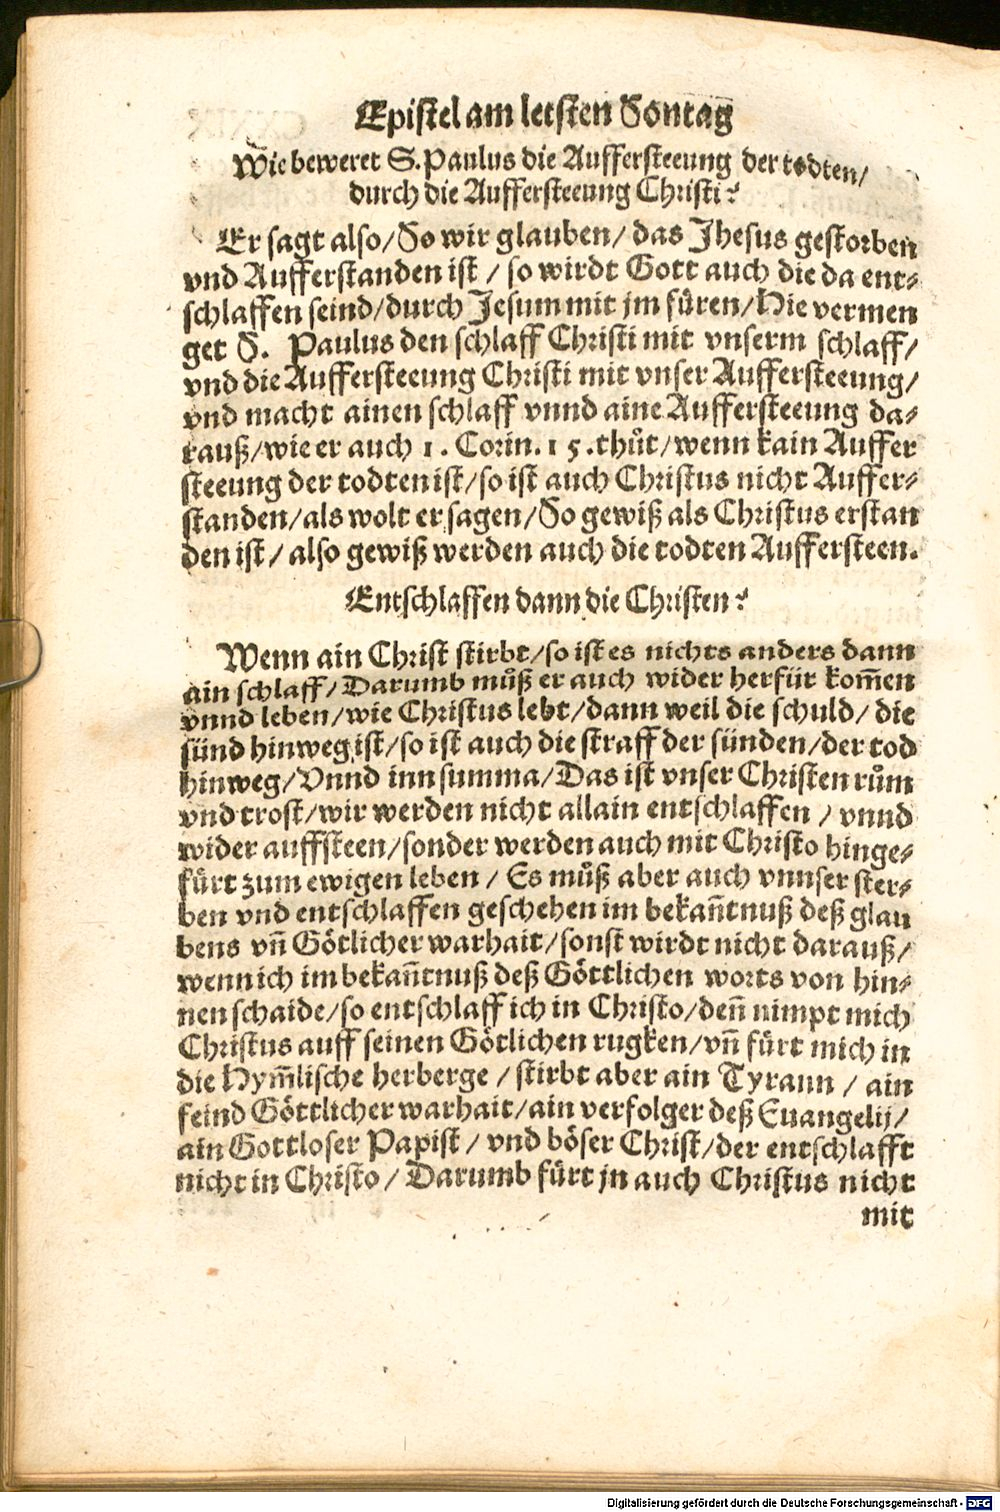 Epistel am letsten Sontag
Wie beweret S. Paulus die Auffersteeung der todten/
durch die Auffersteeung Christi?
Er sagt also/ So wir glauben/ das Jhesus gestorben
vnd Aufferstanden ist / so wirdt Gott auch die da ent-
schlaffen seind/durch Jesum mit jm füren/ Hie vermen
get S. Paulus den schlaff Christi mit vnserm schlaff/
vnd die Auffersteeung Christi mit vnser Auffersteeung/
vnd macht ainen schlaff vnnd aine Auffersteeung da-
rauß/wie er auch 1. Corin. 15. thůt/wenn kain Auffer
steeung der todten ist/so ist auch Christus nicht Auffer-
standen/als wolt er sagen/So gewiß als Christus erstan
den ist/ also gewiß werden auch die todten Auffersteen.
Entschlaffen dann die Christen?
Wenn ain Christ stirbt/so ist es nichts anders dann
ain schlaff/ Darumb můß er auch wider herfür kom̃en
vnnd leben/wie Christus lebt/dann weil die schuld/ die
sünd hinweg ist/so ist auch die straff der sünden/der tod
hinweg/Vnnd inn summa/Das ist vnser Christen rům
vnd trost/wir werden nicht allain entschlaffen / vnnd
wider auffsteen/sonder werden auch mit Christo hinge-
fürt zum ewigen leben / Es můß aber auch vnnser ster-
ben vnd entschlaffen geschehen im bekañtnuß deß glau
bens vñ Götlicher warhait/sonst wirdt nicht darauß/
wenn ich im bekañtnuß deß Göttlichen worts von hin-
nen schaide/so entschlaff ich in Christo/deñ nimpt mich
Christus auff seinen Götlichen rugken/vñ fürt mich in
die Hym̃lische herberge / stirbt aber ain Tyrann / ain
feind Göttlicher warhait/ain verfolger deß Euangelij/
ain Gottloser Papist / vnd böser Christ/der entschlafft
nicht in Christo / Darumb fürt jn auch Christus nicht
mit
Digitalisierung gefördert durch die Deutsche Forschungsgemeinschaft - DFG